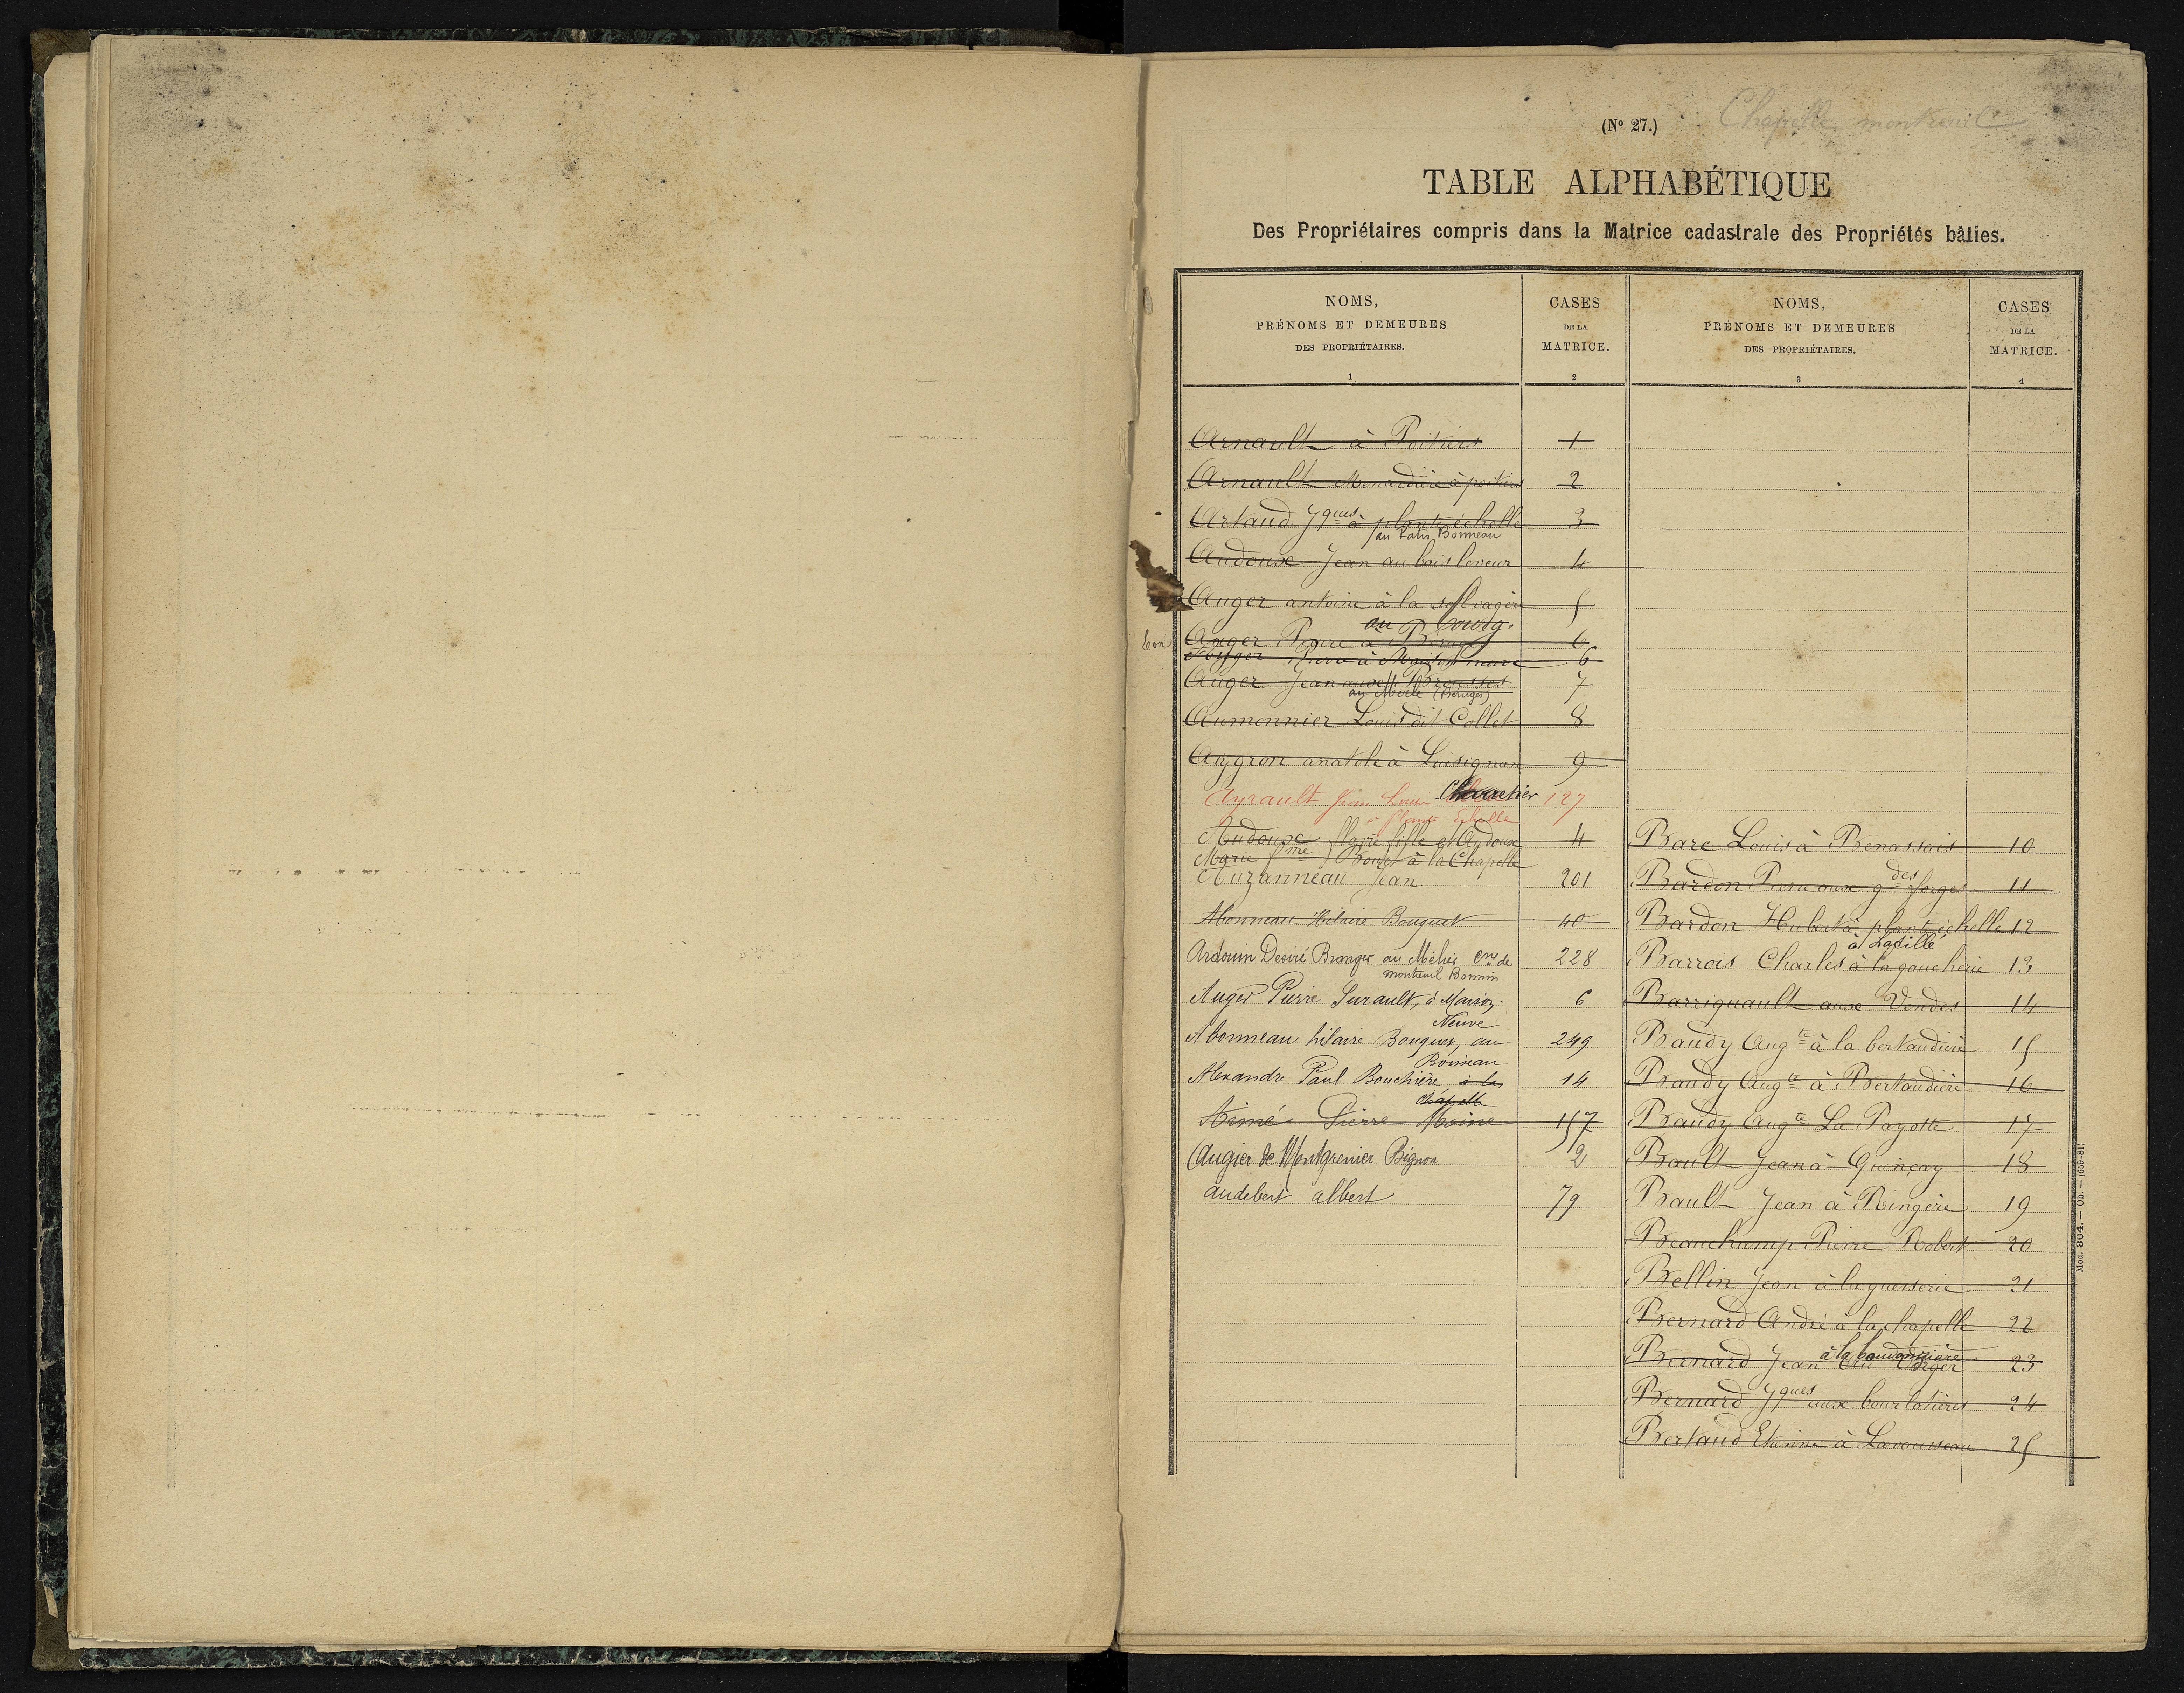 (Nº 27.)
Chapelle montreuil
TABLE ALPHABÉTIQUE
Des Propriétaires compris dans la Matrice cadastrale des Propriétés bâties.
NOMS,
PRÉNOMS ET DEMEURES
DES PROPRIÉTAIRES.
1
CASES
DE LA
MATRICE.
2
NOMS,
PRÉNOMS ET DEMEURES
DES PROPRIÉTAIRES.
3
CASES
DE LA
MATRICE.
4
Arnault à Poitiers 1
Arnault Menardière à poitiers 2
Artaud Jques à plante échelle 3
au Patis Bonneau
Audouse Jean au bois leveur 4
Auger antoine à la 5
au bourg.
Auger Pierre à 6
Auger Pierre à Maison neuve 6
Auger Jean aux Brousses 7
au (Beruges)
Aumonnier Louis dit Collet 8
Aygron anatole à Lusignan 9
Ayrault Jean Louis Charretier 127
à plante Echelle
Audouse Marie fille et Audoux 4
Marie fme Bouet à la Chapelle
Auzanneau Jean 201
Abonneau Hilaire Bouquet 40
Ardouin Desiré Branger au Méhis cne de 228
montreuil Bonnin
Auger Pierre Surault, à Maison 6
Neuve
Abonneau hilaire Bouquet, au 249
Boisneau
Alexandre Paul Bouchière, à la 14
Chapelle
Aimé Pierre Moine 157
Augier de Montgrenier Bignon 2
audebert albert 79
Bare Louis à Benassais 10
Bardon Pierre aux gdes forges 11
Bardon Hubert à plante échelle 12
à Ladillé
Barrois Charles à la gaucherie 13
Barriquault aux Vendes 14
Baudy Augte à la bertaudière 15
Baudy Augte à Bertaudière 16
Baudy Augte La Payotte 17
Bault Jean à Quinçay 18
Bault Jean à Ringère 19
Beauchamp Pierre Robert 20
Bellin Jean à la guesserie 21
Bernard André à la chapelle 22
à la baudonnière
Bernard Jean 23
Bernard Jques aux bourlotières 24
Bertaud Etienne à Lavausseau 25
Mod. 304. — Ob. — (659-81)